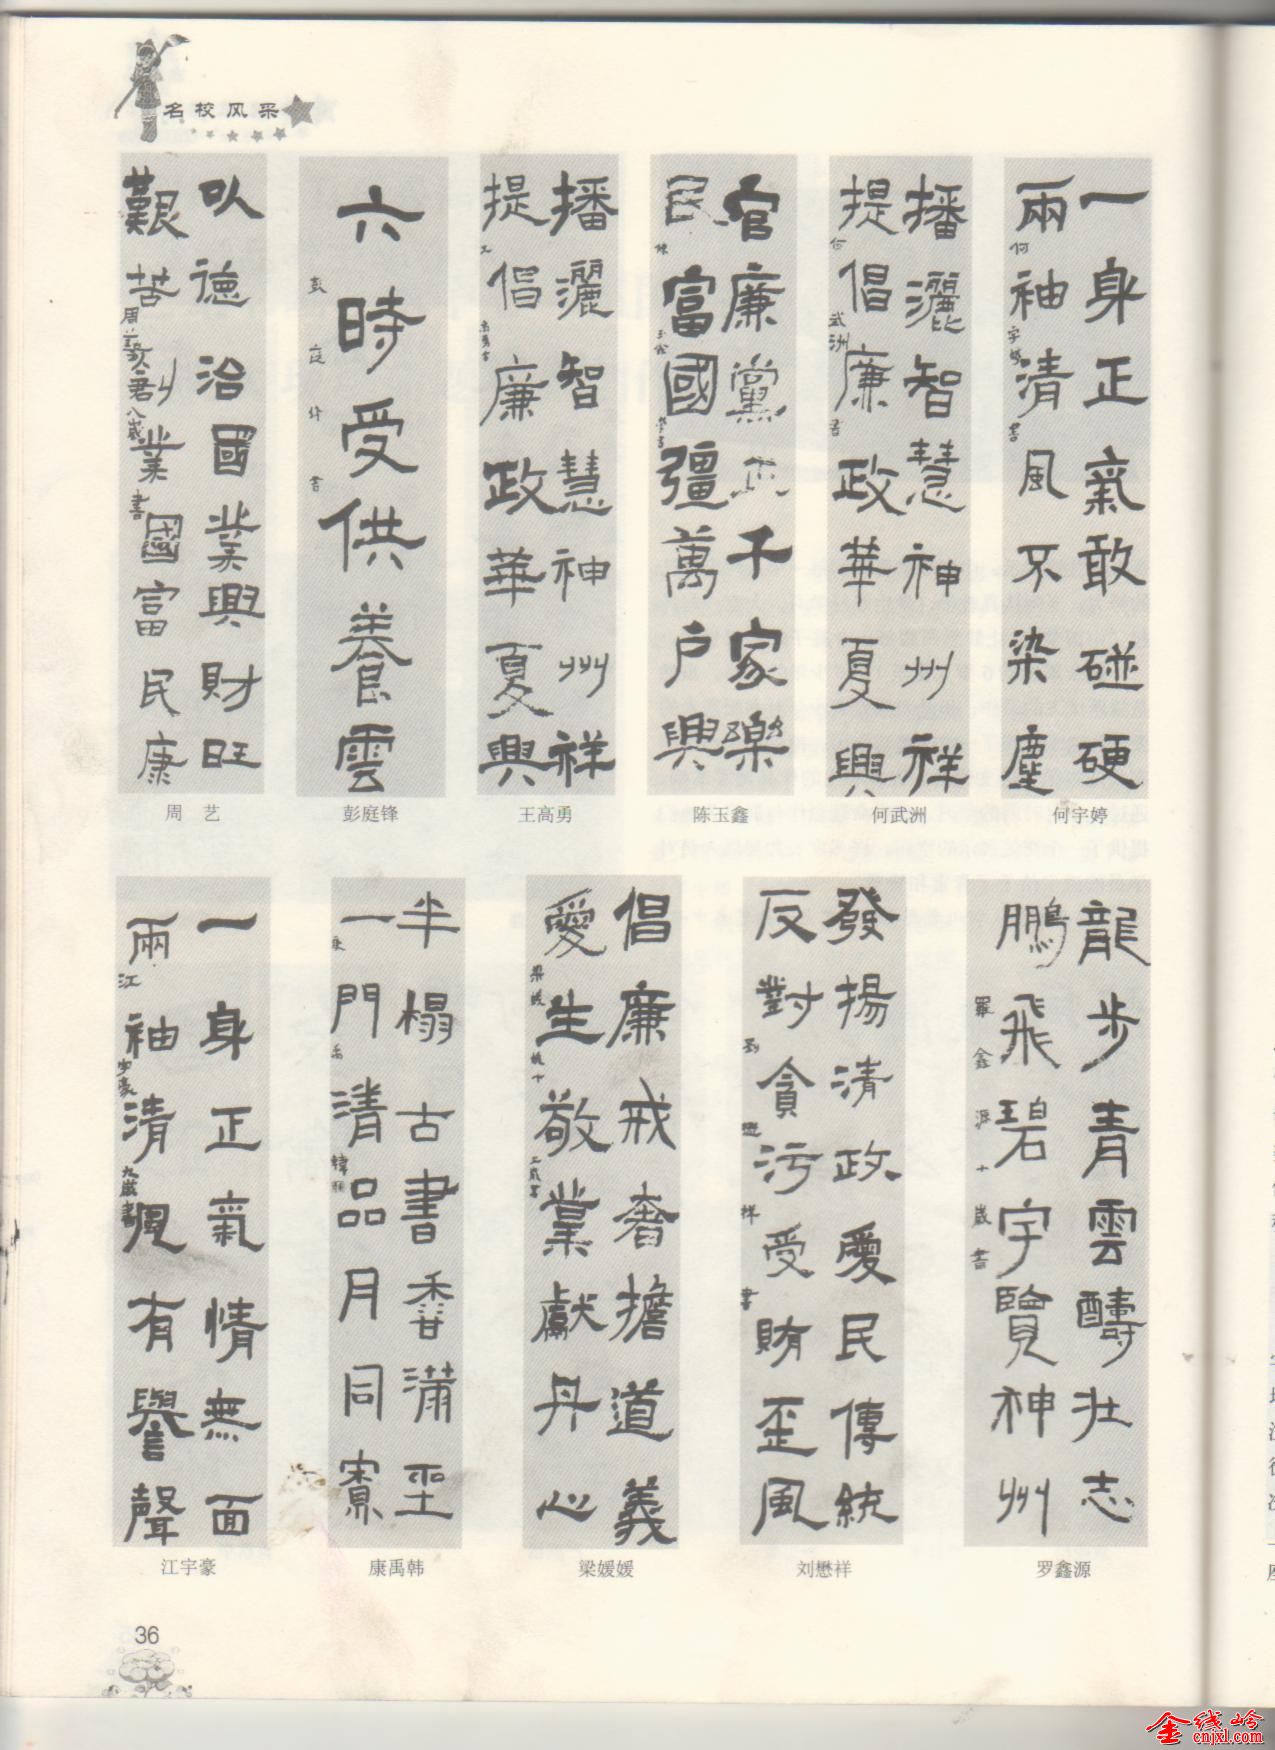 名校风采
一身正氣敢碰硬
兩袖清風不染塵
何宇婷書
何宇婷
播灑智慧神州祥
提倡廉政華夏興
何武洲書
何武洲
官廉黨正千家樂
民富國彊萬戶興
陈玉鑫
播灑智慧神州祥
提倡廉政華夏興
王高勇書
王高勇
六時受供養雲
彭庭锋
以德治國業興財旺
艱苦創業國富民康
八歲書
周 艺
龍步青雲酬壯志
鵬飛碧宇覽神州
羅鑫源十歲書
罗鑫源
發揚清政愛民傳統
反對貪污受賄歪風
刘懋祥書
刘懋祥
倡廉戒奢擔道義
愛生敬業獻丹心
梁媛媛十二歲書
梁媛媛
半榻古書香滿坐
一門清品月同寮
康禹韓
康禹韩
一身正氣情無面
兩袖清風有譽聲
江宇豪九歲書
江宇豪
36
金线岭
cnjxl.com